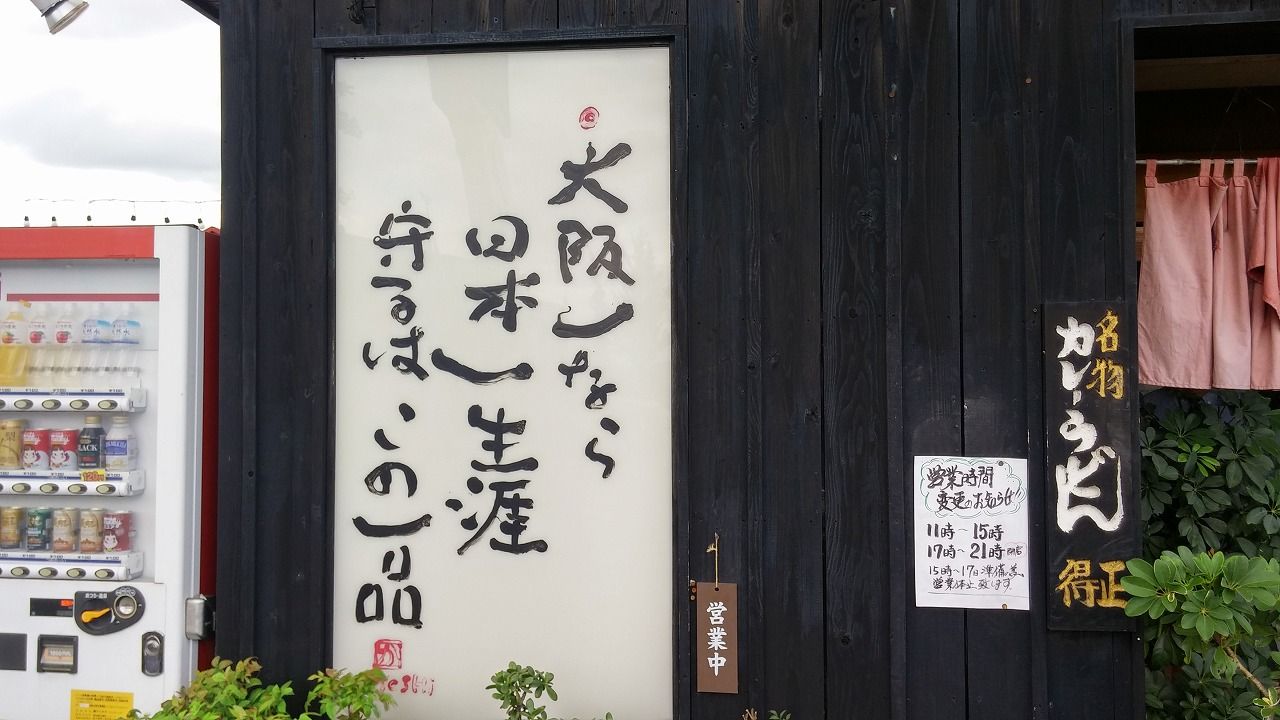 大阪一なら
日本一生涯
守るはこの一品
営業中
営業時間
変更のお知らせ!!
11時～15時
17時～21時閉店
営業休止致します。
名物
カレーうどん
得正
BLACK
120円